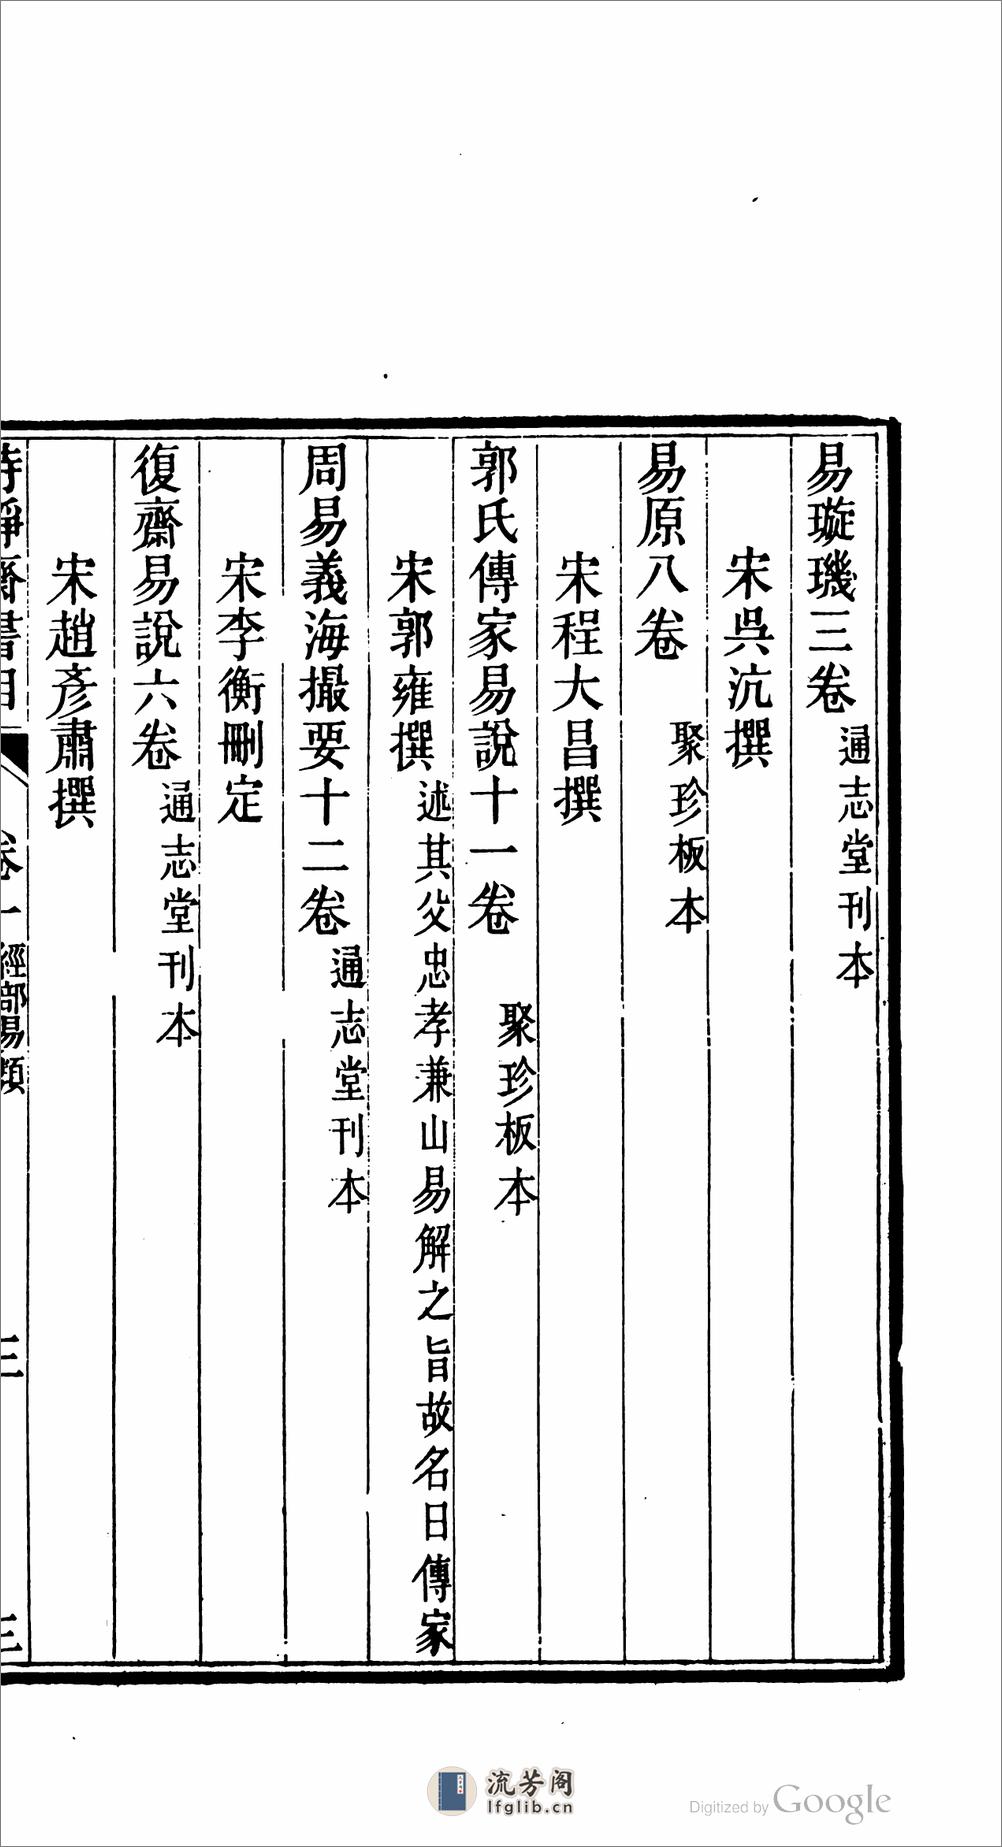 易璇璣三卷 通志堂刊本
宋吳沆撰
易原八卷 聚珍板本
宋程大昌撰
郭氏傳家易說十一卷 聚珍板本
宋郭雍撰 述其父忠孝兼山易解之旨故名曰傳家
周易義海撮要十二卷 通志堂刊本
宋李衡刪定
復齋易說六卷 通志堂刊本
宋趙彥肅撰
持靜齋書目 卷一 經部易類 三 三
流芳阁
lfglib.cn
Digitized by Google